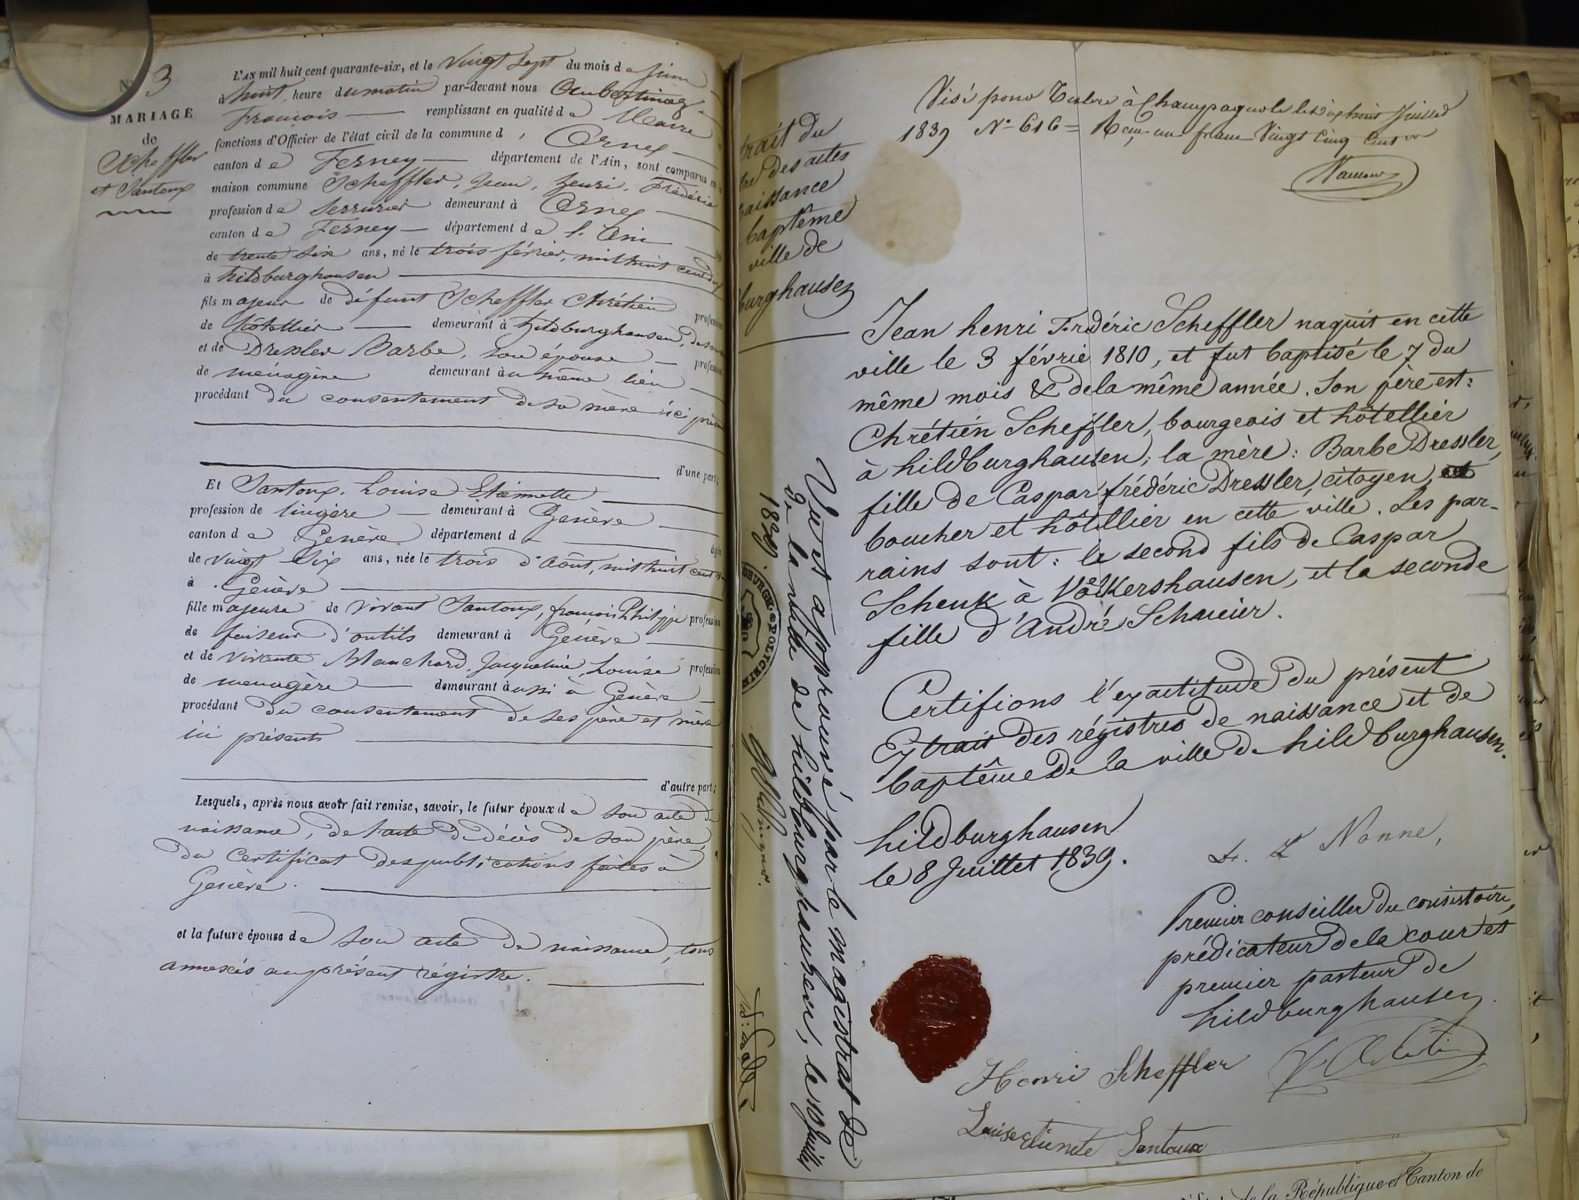 N° 3
MARIAGE
de
Scheffler
et Santoux
L'AN mil huit cent quarante-six, et le vingt sept du mois de juin
à huit heure du matin par-devant nous
François remplissant en qualité de Maire
fonctions d'Officier de l'état civil de la commune d'Ornex
canton de Ferney département de l'Ain, sont comparus en
maison commune Scheffler, Jean, henri, Frédéric
profession de serrurier demeurant à Ornex
canton de Ferney département de l'Ain
de trente six ans, né le trois février, mil huit cent dix
à hildburghausen
fils majeur de défunt Scheffler Chrétien profession
de hôtellier demeurant à hildburghausen,
et de Drexler Barbe, son épouse profession
de ménagère demeurant au même lieu
procédant du consentement de sa mère ici
d'une part;
Et Santoux, Louise Etiennette
profession de lingère demeurant à Genève
canton de Genève département d
de vingt six ans, née le trois d'Août, mil huit cent
à Genève
fille majeure de vivant Santoux, françois Philippe profession
de faiseur d'outils demeurant à Genève
et de vivante Blanchard, Jacqueline, Louise profession
de menagère demeurant aussi à Genève
procédant du consentement de ses père et mère
ici présents
d'autre part;
Lesquels, après nous avoir fait remise, savoir, le futur époux de son acte de
naissance, de l'acte de décès de son père,
du certificat des publications faites à
Genève.
et la future épouse de son acte de naissance, tous
annexés au présent régistre.
Visé pour Timbre à Champagnole le dix huit Juillet
1839 N° 616 = Reçu un franc Vingt Cinq Cent
trait du
tre des actes
naissance
baptême
ville de
burghausen
Jean henri Frédéric Scheffler naquit en cette
ville le 3 févrié 1810, et fut baptisé le 7 du
même mois & de la même année. Son père est:
Chrétién Scheffler, bourgeois et hôtellier
à hildburghausen; la mère: Barbe Dressler,
fille de Caspar frédéric Dressler, citoyen,
boucher et hôtellier en cette ville. Les par-
rains sont: le second fils de Caspar
Schenk à Völkershausen, et la seconde
fille d'André Schmeier.
Certifions l'exactitude du présent
Extrait des régistres de naissance et de
baptême de la ville de hildburghausen.
hildburghausen
le 8 Juillet 1839.
Nonne,
Premier conseiller du consistoire,
prédicateur de la cour et
premier pasteur de
hildburghausen.
Henri Scheffler
Louise Etienete Santoux
Vu et approuvé par le magistrat de
la ville de hildbourghausen, le 10 Juillet
1839.
POLICEI
de la République et Canton de